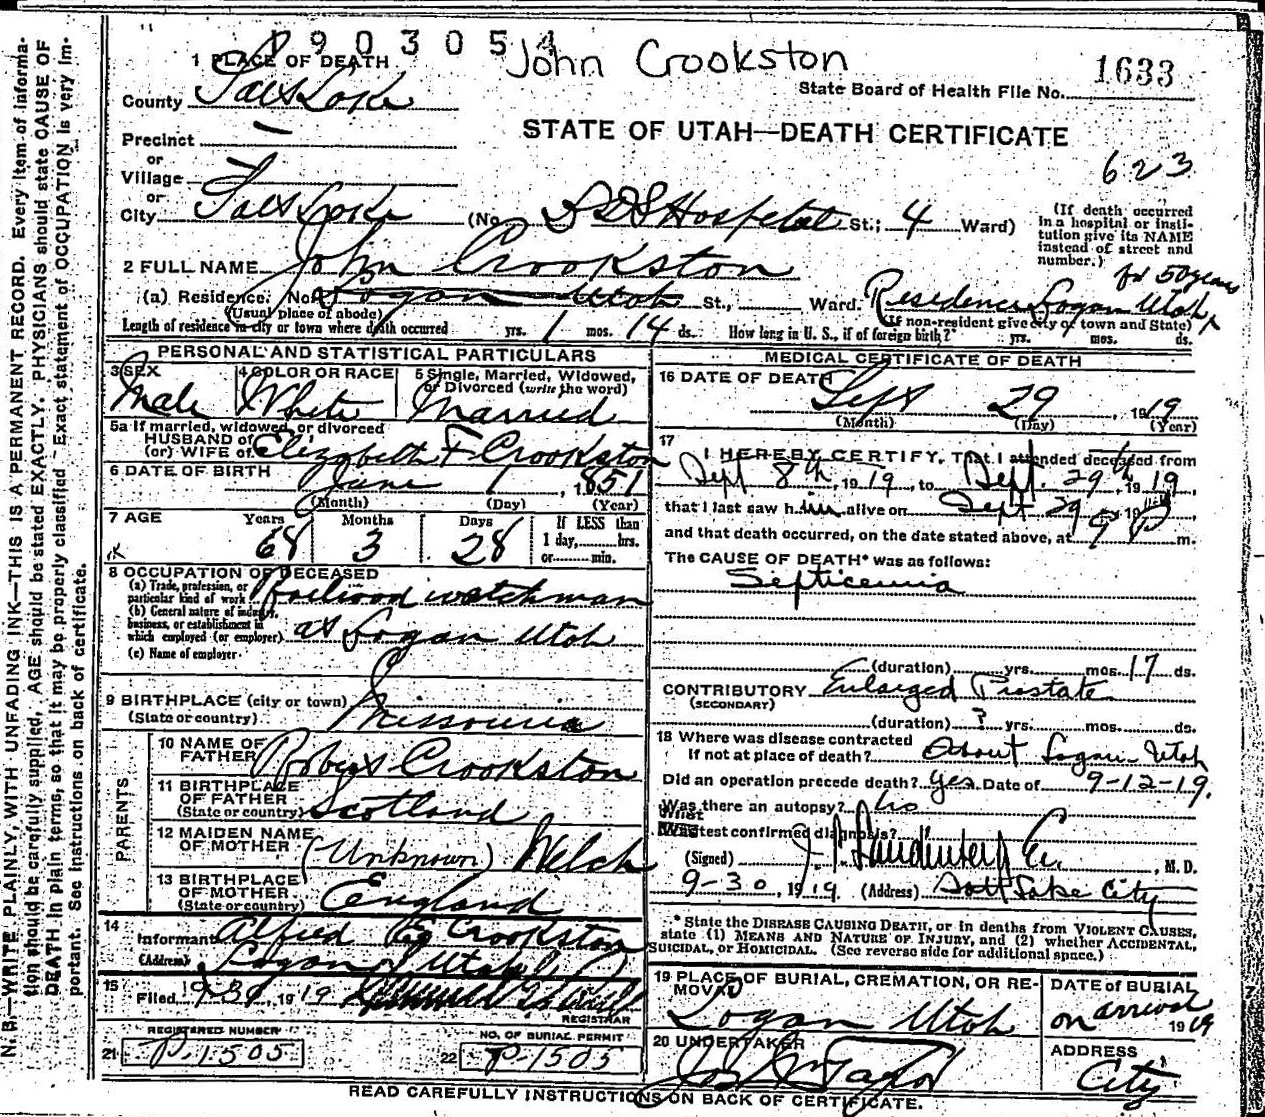 1903054 John Crookston
1633
State Board of Health File No.
STATE OF UTAH—DEATH CERTIFICATE
623
1 PLACE OF DEATH
County Salt Lake
Precinct —
or
Village —
or
City Salt Lake (No. LDS Hospital St.; 4 Ward)
(If death occurred
in a hospital or insti-
tution give its NAME
instead of street and
number.)
2 FULL NAME John Crookston
for 50 years
(a) Residence. No. Logan Utah St., Ward. Residence Logan Utah
(Usual place of abode) (If non-resident give city or town and State)
Length of residence in city or town where death occurred yrs. 1 mos. 14 ds. How long in U. S., if of foreign birth? yrs. mos. ds.
PERSONAL AND STATISTICAL PARTICULARS
3 SEX 4 COLOR OR RACE 5 Single, Married, Widowed,
or Divorced (write the word)
Male White Married
5a If married, widowed, or divorced
HUSBAND of
(or) WIFE of Elizabeth F Crookston
6 DATE OF BIRTH June 1, 1851
(Month) (Day) (Year)
7 AGE Years Months Days If LESS than
1 day, hrs.
or min.
68 3 28
8 OCCUPATION OF DECEASED
(a) Trade, profession, or
particular kind of work Railroad watchman
(b) General nature of industry,
business, or establishment in
which employed (or employer) at Logan Utah
(c) Name of employer
9 BIRTHPLACE (city or town)
(State or country) Missouria
PARENTS
10 NAME OF
FATHER Robert Crookston
11 BIRTHPLACE
OF FATHER
(State or country) Scotland
12 MAIDEN NAME
OF MOTHER (Unknown) Welch
13 BIRTHPLACE
OF MOTHER
(State or country) England
14
Informant Alfred Crookston
(Address) Logan Utah
15
Filed 9-30, 1919
REGISTRAR
REGISTERED NUMBER
21 P-1505
NO. OF BURIAL PERMIT
22 P-1505
MEDICAL CERTIFICATE OF DEATH
16 DATE OF DEATH
Sept 29, 1919
(Month) (Day) (Year)
17
I HEREBY CERTIFY, That I attended deceased from
Sept 8th, 1919, to Sept. 29th, 1919,
that I last saw him alive on Sept 29, 19
and that death occurred, on the date stated above, at 9 P m.
The CAUSE OF DEATH* was as follows:
Septicemia
(duration) yrs. mos. 17 ds.
CONTRIBUTORY Enlarged Prostate
(SECONDARY)
(duration) ? yrs. mos. ds.
18 Where was disease contracted
If not at place of death? About Logan Utah
Did an operation precede death? yes. Date of 9-12-19.
Was there an autopsy? no
What test confirmed diagnosis?
(Signed) , M. D.
9-30, 1919. (Address) Salt Lake City
* State the DISEASE CAUSING DEATH, or in deaths from VIOLENT CAUSES,
state (1) MEANS AND NATURE OF INJURY, and (2) whether ACCIDENTAL,
SUICIDAL, or HOMICIDAL. (See reverse side for additional space.)
19 PLACE OF BURIAL, CREMATION, OR RE-
MOVAL
Logan Utah
DATE of BURIAL
on arrival
1919
20 UNDERTAKER
Jos Wm Taylor
ADDRESS
City
READ CAREFULLY INSTRUCTIONS ON BACK OF CERTIFICATE.
N. B.—WRITE PLAINLY, WITH UNFADING INK—THIS IS A PERMANENT RECORD. Every item of informa-
tion should be carefully supplied. AGE should be stated EXACTLY. PHYSICIANS should state CAUSE OF
DEATH in plain terms, so that it may be properly classified. Exact statement of OCCUPATION is very im-
portant. See instructions on back of certificate.